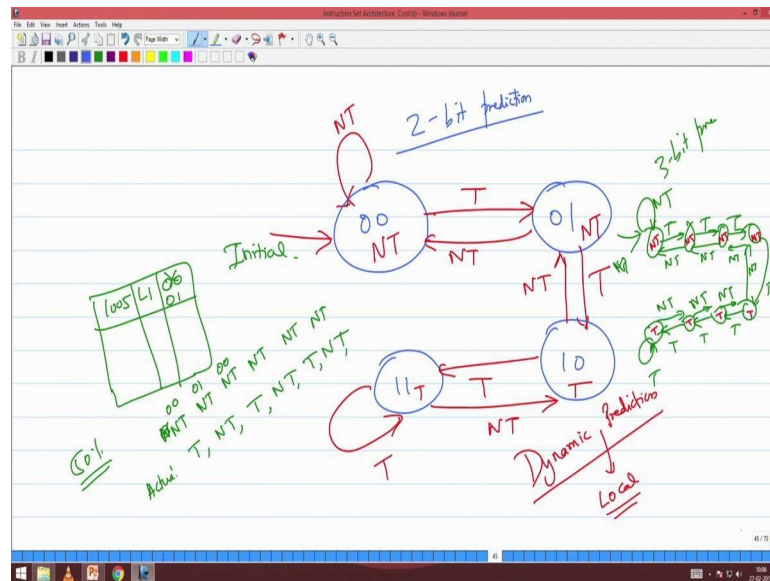 Instruction Set Architecture. Cont'd) - Windows Journal
File Edit View Insert Actions Tools Help
Page Width
B I
2-bit prediction
3-bit pre
NT
T
NT
Initial.
00
NT
01
NT
NT
T
10
T
11
T
T
NT
T
NT
T T T
NT NT NT
NT NT NT NT
NT
T
NT NT NT
T T T T
T T T
T
1005 L1 00
01
00 01 00
NT NT NT NT NT NT
Actual: T, NT, T, NT, T, NT,
50%
Dynamic Prediction
Local
45 / 70
45
10:06